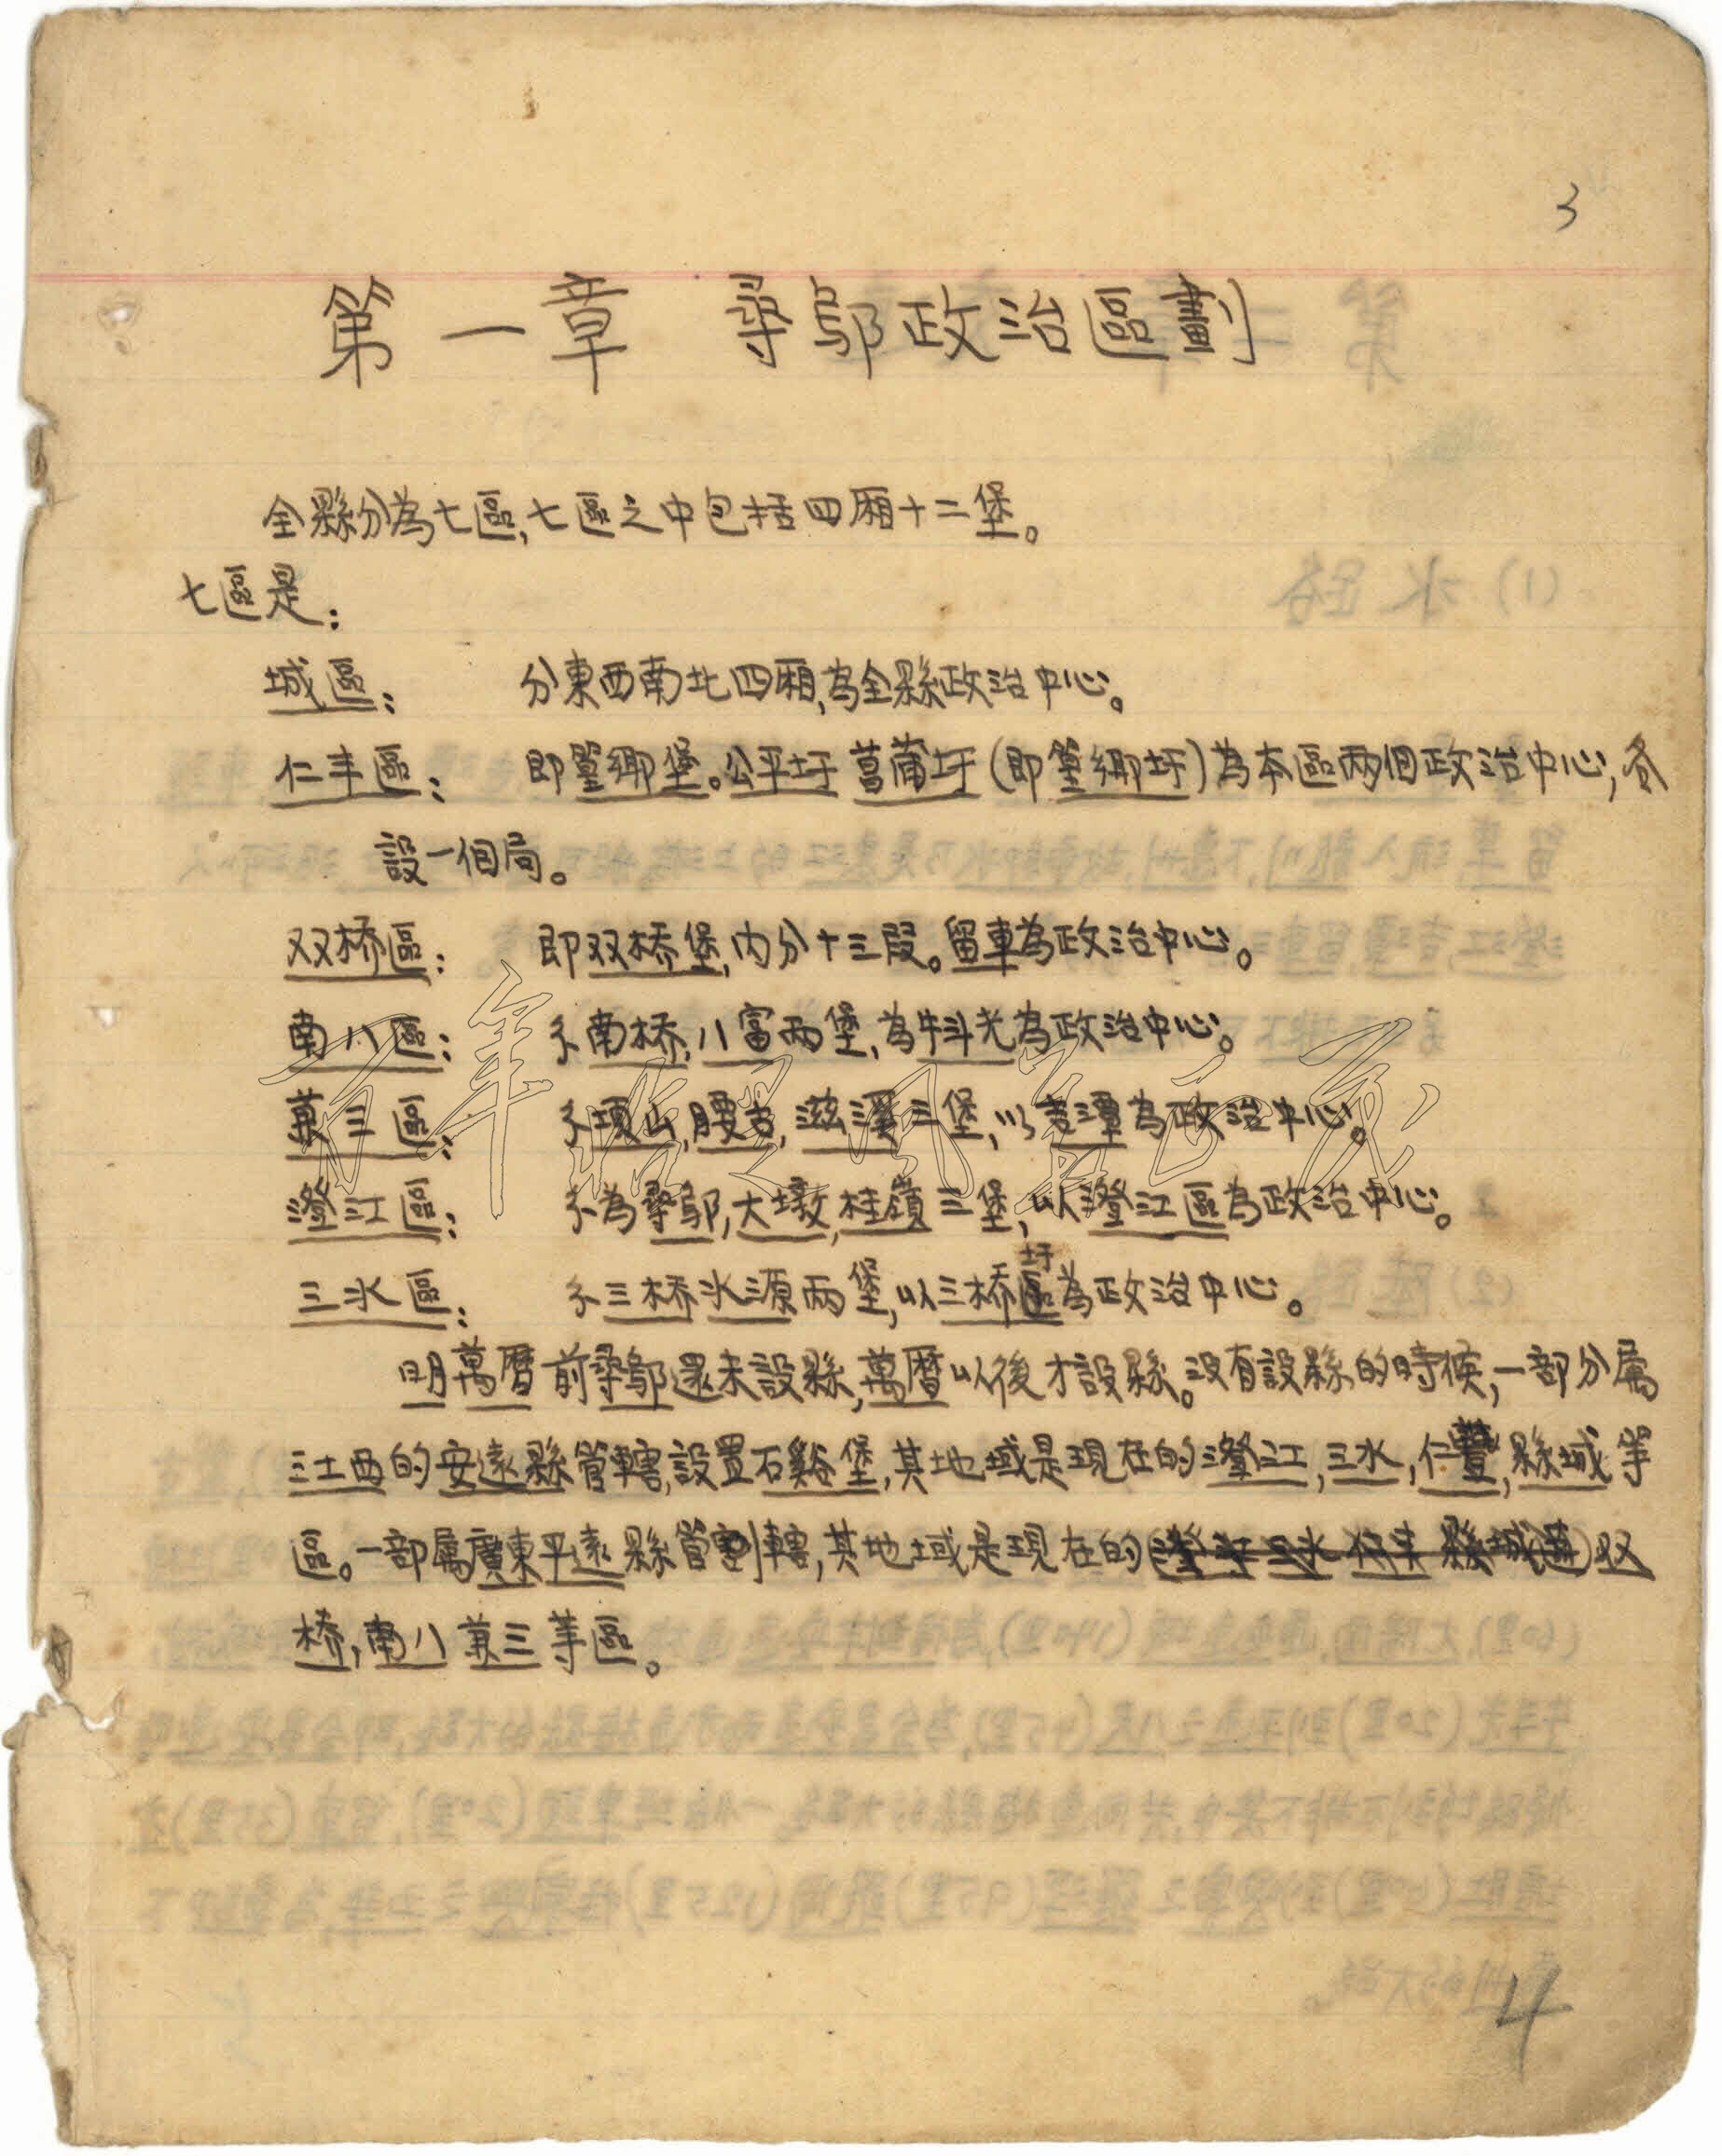 3
第一章 尋鄔政治區劃
全縣分為七區,七區之中包括四廂十二堡。
七區是:
城區: 分東西南北四廂,為全縣政治中心。
仁丰區: 即篁鄉堡。公平圩 菖蒲圩(即篁鄉圩)為本區兩個政治中心,各
設一個局。
双桥區: 即双桥堡,內分十三段。留車為政治中心。
南八區: 南桥,八富兩堡,為牛斗光為政治中心。
兼三區: 項山,腰古,滋溪三堡,以吉潭為政治中心。
澄江區: 為尋鄔,大墩,桂嶺三堡,以澄江區為政治中心。
三水區: 三桥水源兩堡,以三桥圩為政治中心。
明萬曆前尋鄔還未設縣,萬曆以後才設縣。没有設縣的時候,一部分屬
江西的安遠縣管轄,設置石谿堡,其地域是現在的澄江,三水,仁豐,縣城等
區。一部屬廣東平遠縣管轄,其地域是現在的双
桥,南八兼三等區。
4